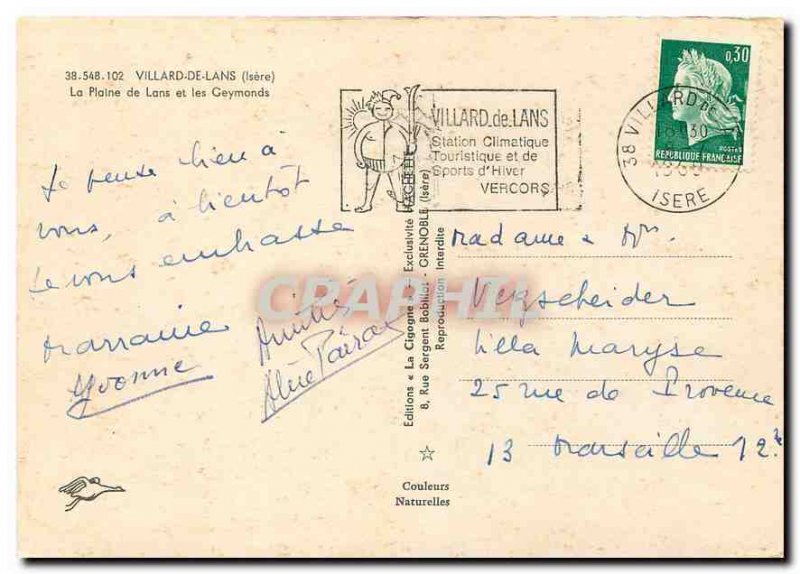 38.548.102 VILLARD-DE-LANS (Isère)
La Plaine de Lans et les Geymonds
VILLARD.de.LANS
Station Climatique
Touristique et de
Sports d'Hiver
VERCORS
0,30
POSTES
REPUBLIQUE FRANÇAISE
38 VILLARD de
ISERE
Je pense bien à
vous, à bientôt
Je vous embrasse
Marraine
Yvonne
Amitiés
Editions « La Cigogne » - Exclusivité HACHETTE
8, Rue Sergent Bobillot - GRENOBLE (Isère)
Reproduction Interdite
Madame & Mr.
Vegscheider
Villa Maryse
25 rue de Provence
13 Marseille 12e
Couleurs
Naturelles
CPAPHIL